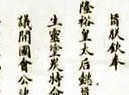 旨朕欽奉
隆裕皇太后懿
生靈塗炭特命
議開國會公決